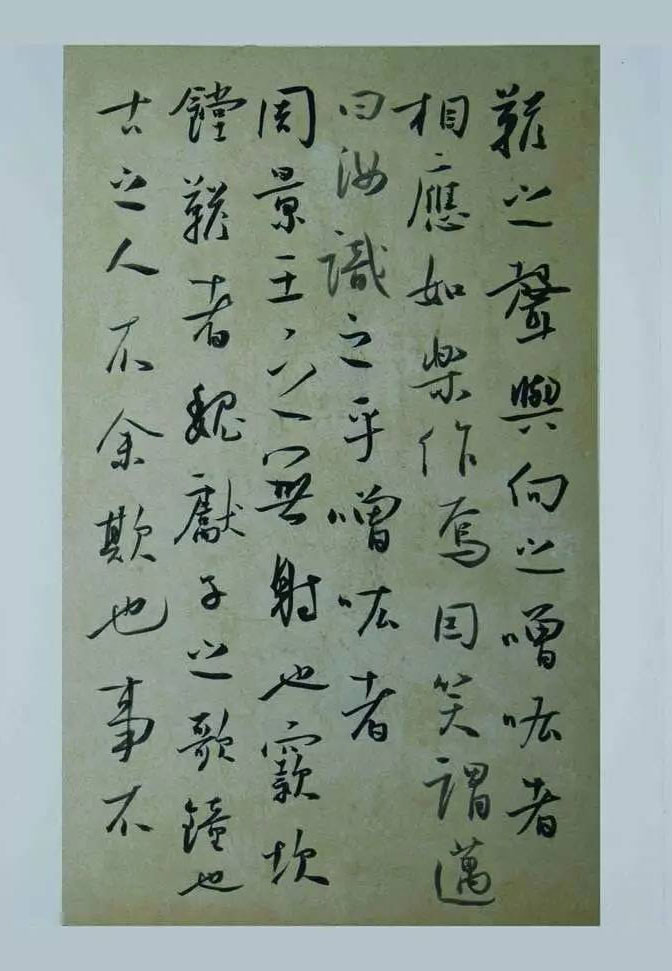 鞳之聲與向之噌吰者
相應如樂作焉因笑謂邁
曰汝識之乎噌吰者
周景王之無射也窾坎
鏜鞳者魏獻子之歌鐘也
古之人不余欺也事不